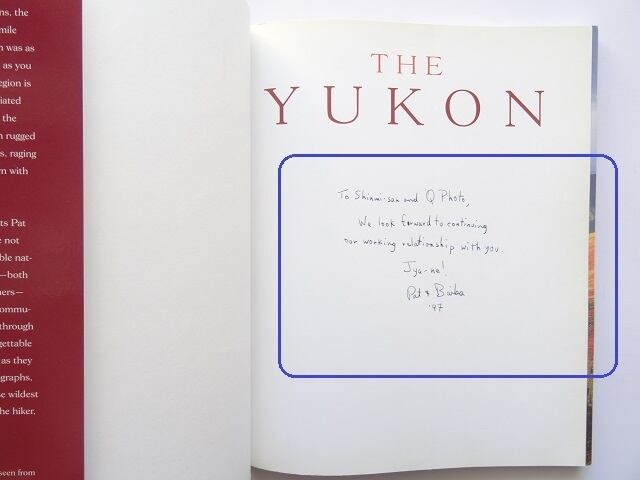 ns, the
mile
n was as
as you
egion is
iated
the
n rugged
s, raging
n with
ts Pat
e not
ble nat-
—both
ners—
ommu-
through
gettable
as they
graphs,
e wildest
he hiker,
seen from
THE
YUKON
To Shinmi-san and Q Photo,
We look forward to continuing
our working relationship with you.
Jya-ne!
Pat & Baiba
'97